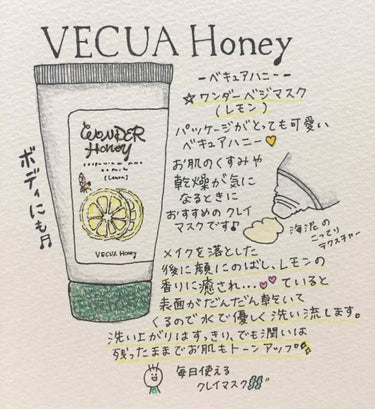 VECUA Honey
ーベキュアハニーー
☆ワンダーベジマスク
(レモン)
パッケージがとっても可愛い
ベキュアハニー
お肌のくすみや
乾燥が気に
なるときに
おすすめのクレイ
マスクです♪
WONDER
Honey
(Lemon)
VECUA Honey
ボディにも♫
海泥の
こってり
テクスチャー
メイクを落とした
後に顔にのばし、レモンの
香りに癒され...♡♡ていると
表面がだんだん乾いて
くるので水で優しく洗い流します。
洗い上がりはすっきり、でも潤いは
残ったままでお肌もトーンアップ
毎日使える
クレイマスク